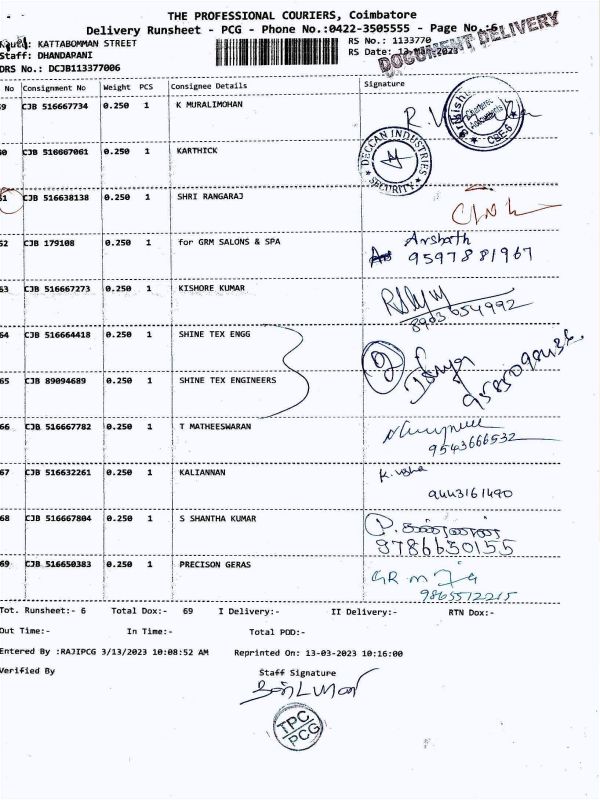 THE PROFESSIONAL COURIERS, Coimbatore
Delivery Runsheet - PCG - Phone No.:0422-3505555 - Page No.:6
DOCUMENT DELIVERY
KATTABOMMAN STREET
RS No.: 1133770
Staff: DHANDAPANI
RS Date: 13-Mar-2023
DRS No.: DCJB113377006
No Consignment No Weight PCS Consignee Details Signature
59 CJB 516667734 0.250 1 K MURALIMOHAN
Chartered Accountants CBE-6
60 CJB 516667061 0.250 1 KARTHICK
DECCAN INDUSTRIES SECURITY
61 CJB 516638138 0.250 1 SHRI RANGARAJ
62 CJB 179108 0.250 1 for GRM SALONS & SPA
Arshath
9597881967
63 CJB 516667273 0.250 1 KISHORE KUMAR
8903654992
64 CJB 516664418 0.250 1 SHINE TEX ENGG
65 CJB 89094689 0.250 1 SHINE TEX ENGINEERS
66 CJB 516667782 0.250 1 T MATHEESWARAN
9543666532
67 CJB 516632261 0.250 1 KALIANNAN
K. Usha
9443161490
68 CJB 516667804 0.250 1 S SHANTHA KUMAR
P. கண்ணன்
9786630155
69 CJB 516650383 0.250 1 PRECISON GERAS
9865512215
Tot. Runsheet:- 6 Total Dox:- 69 I Delivery:- II Delivery:- RTN Dox:-
Out Time:- In Time:- Total POD:-
Entered By :RAJIPCG 3/13/2023 10:08:52 AM Reprinted On: 13-03-2023 10:16:00
Verified By Staff Signature
TPC
PCG